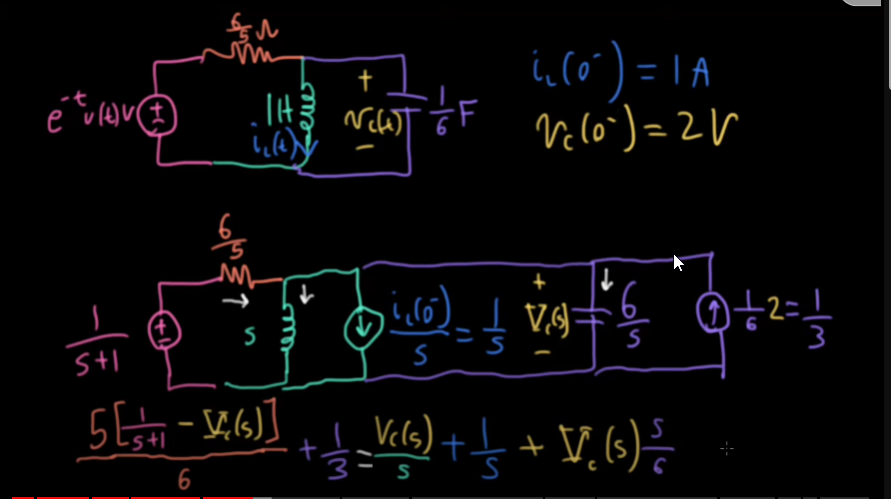 6/5 Ω
e^{-t} u(t) V
1H
i_L(t)
+
v_c(t)
−
1/6 F
i_L(0⁻) = 1 A
v_c(0⁻) = 2 V
6/5
1/(s+1)
s
i_L(0⁻)/s = 1/s
+
V_c(s)
−
6/s
1/6 2 = 1/3
5[1/(s+1) − V_c(s)]/6 + 1/3 = V_c(s)/s + 1/s + V_c(s) s/6